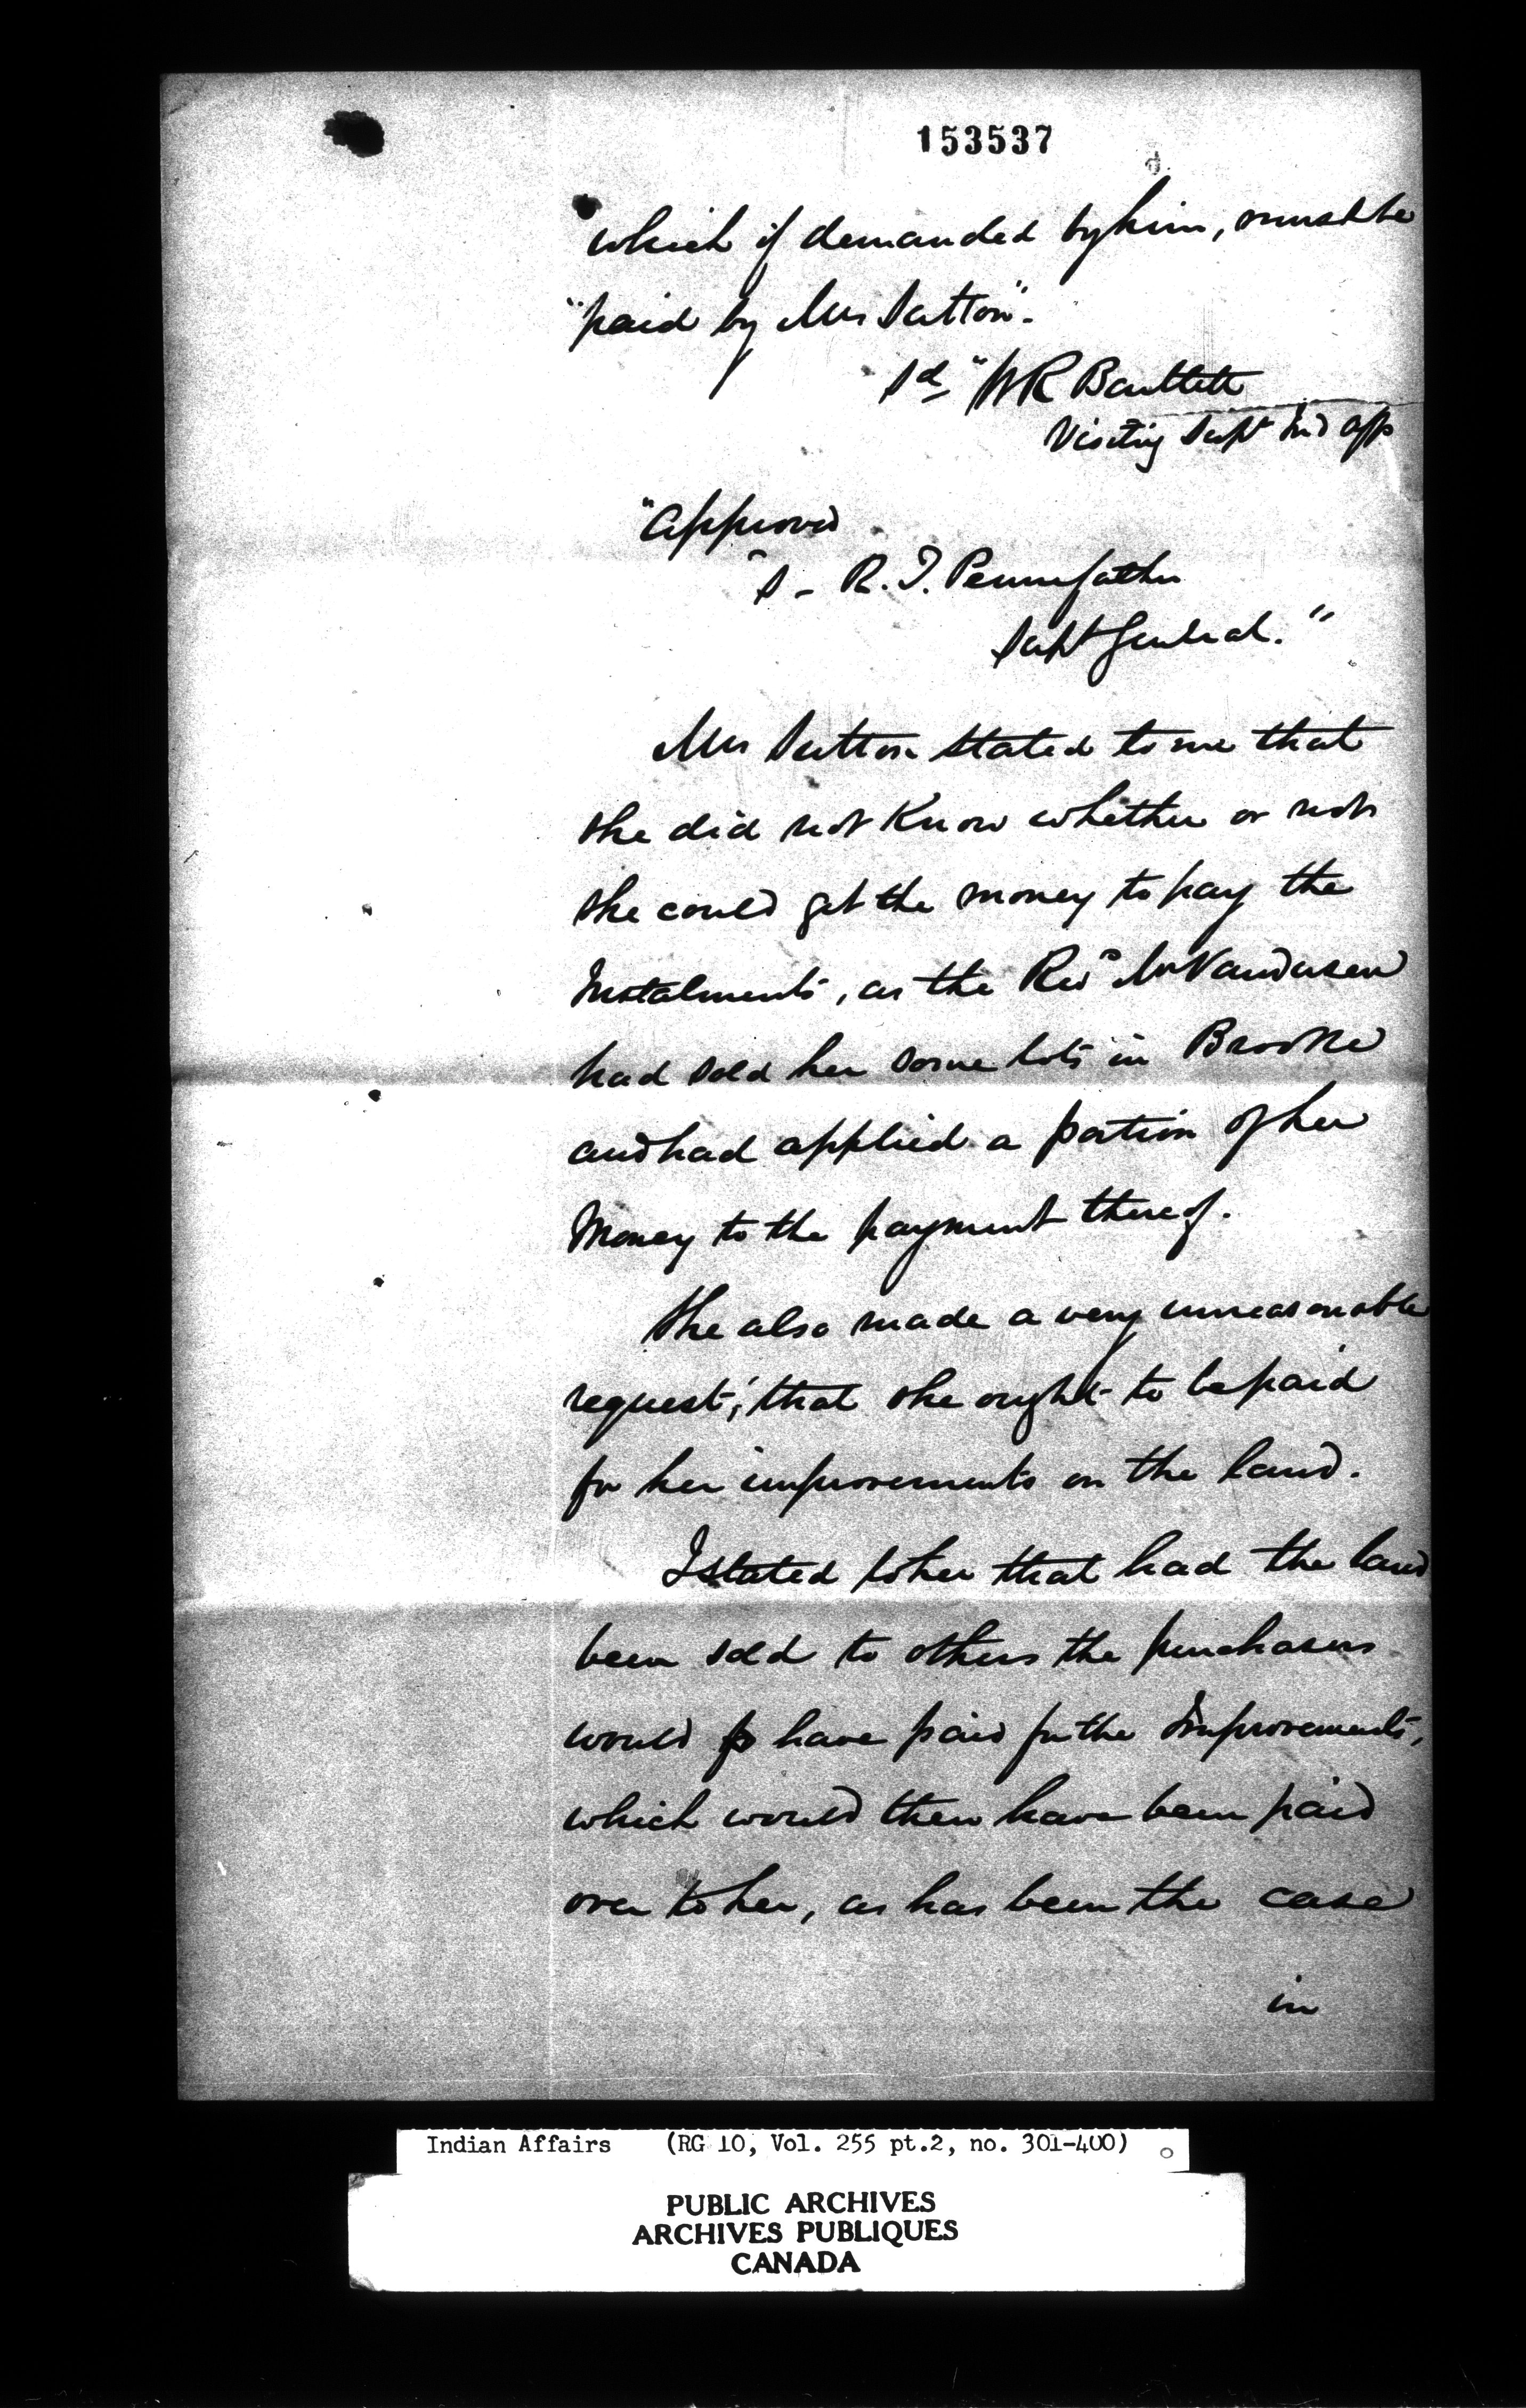 153537
"which if demanded by him, must be
"paid by Mrs Sutton".
Sd "W R Bartlett
Visiting Supt Ind Affs
"Approved
"S- R. T. Pennefather
Supt General."
Mrs Sutton stated to me that
she did not know whether or not
she could get the money to pay the
Instalments, as the Revd Mr Vandusen
had sold her some lots in Brooke
and had applied a portion of her
money to the payment thereof.
She also made a very unreasonable
request, that she ought to be paid
for her improvements on the land.
I stated to her that had the land
been sold to others the purchasers
would have paid for the Improvements,
which would then have been paid
over to her, as has been the case
in
Indian Affairs (RG 10, Vol. 255 pt.2, no. 301-400)
PUBLIC ARCHIVES
ARCHIVES PUBLIQUES
CANADA